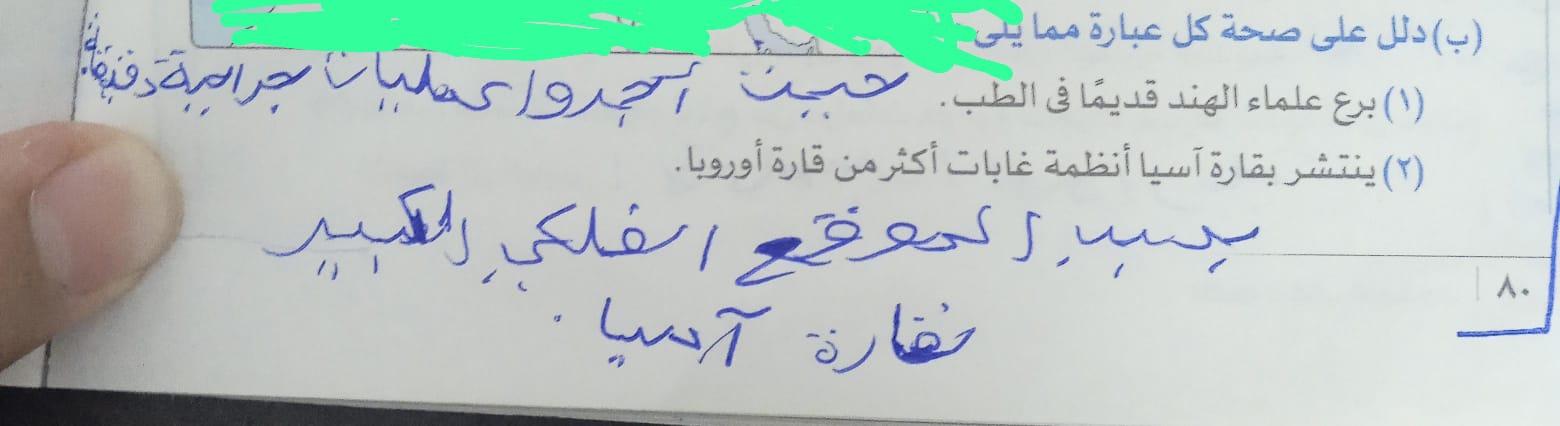 (ب) دلل على صحة كل عبارة مما يلى
(١) برع علماء الهند قديمًا فى الطب. حيث أجروا عمليات جراحية دقيقة.
(٢) ينتشر بقارة آسيا أنظمة غابات أكثر من قارة أوروبا.
بسبب الموقع الفلكي الكبير
لقارة آسيا.
٨٠